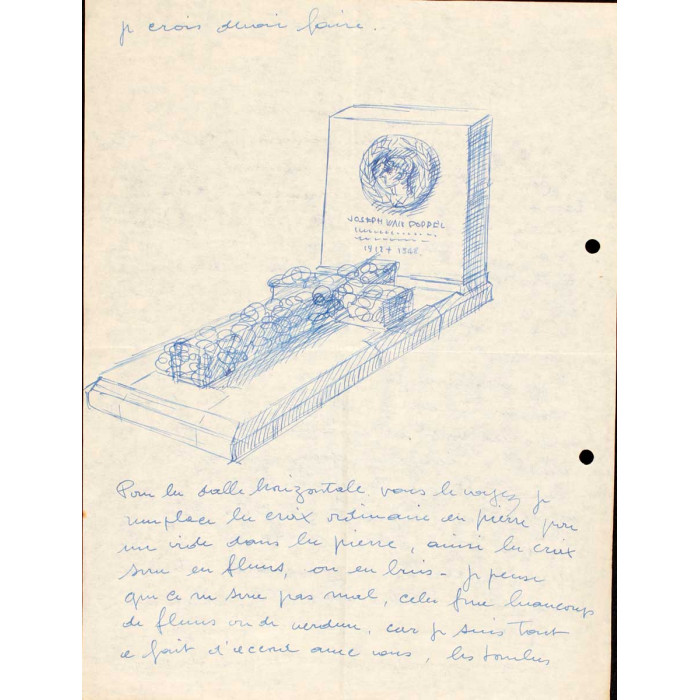 je crois devoir faire.
JOSEPH VAN POPPEL
1912 + 1948.
Pour la dalle horizontale vous le voyez, je
remplace la croix ordinaire en pierre par
un vide dans la pierre, ainsi la croix
sera en fleurs, ou en buis - je pense
que ce ne sera pas mal, cela fera beaucoup
de fleurs ou de verdure, car je suis tout
à fait d'accord avec vous, les tombes